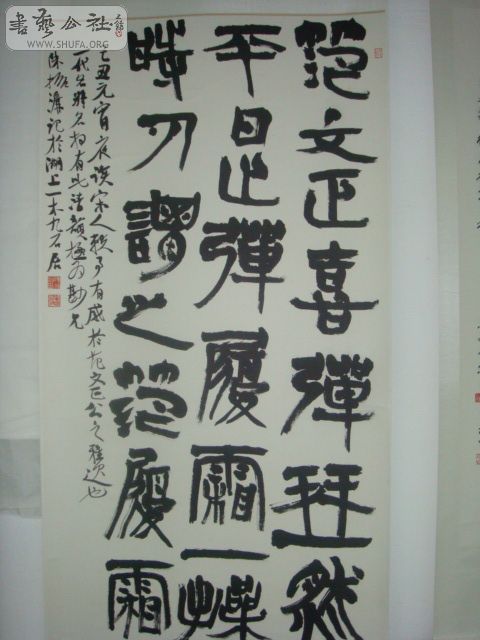 范文正喜彈琴然
平日止彈履霜一操
時人謂之范履霜
己丑元宵夜读宋人轶事有感於范文正公之雅逸也
一代名有此清韵
陈振濂记於湖上一木九石居
書藝公社
WWW.SHUFA.ORG